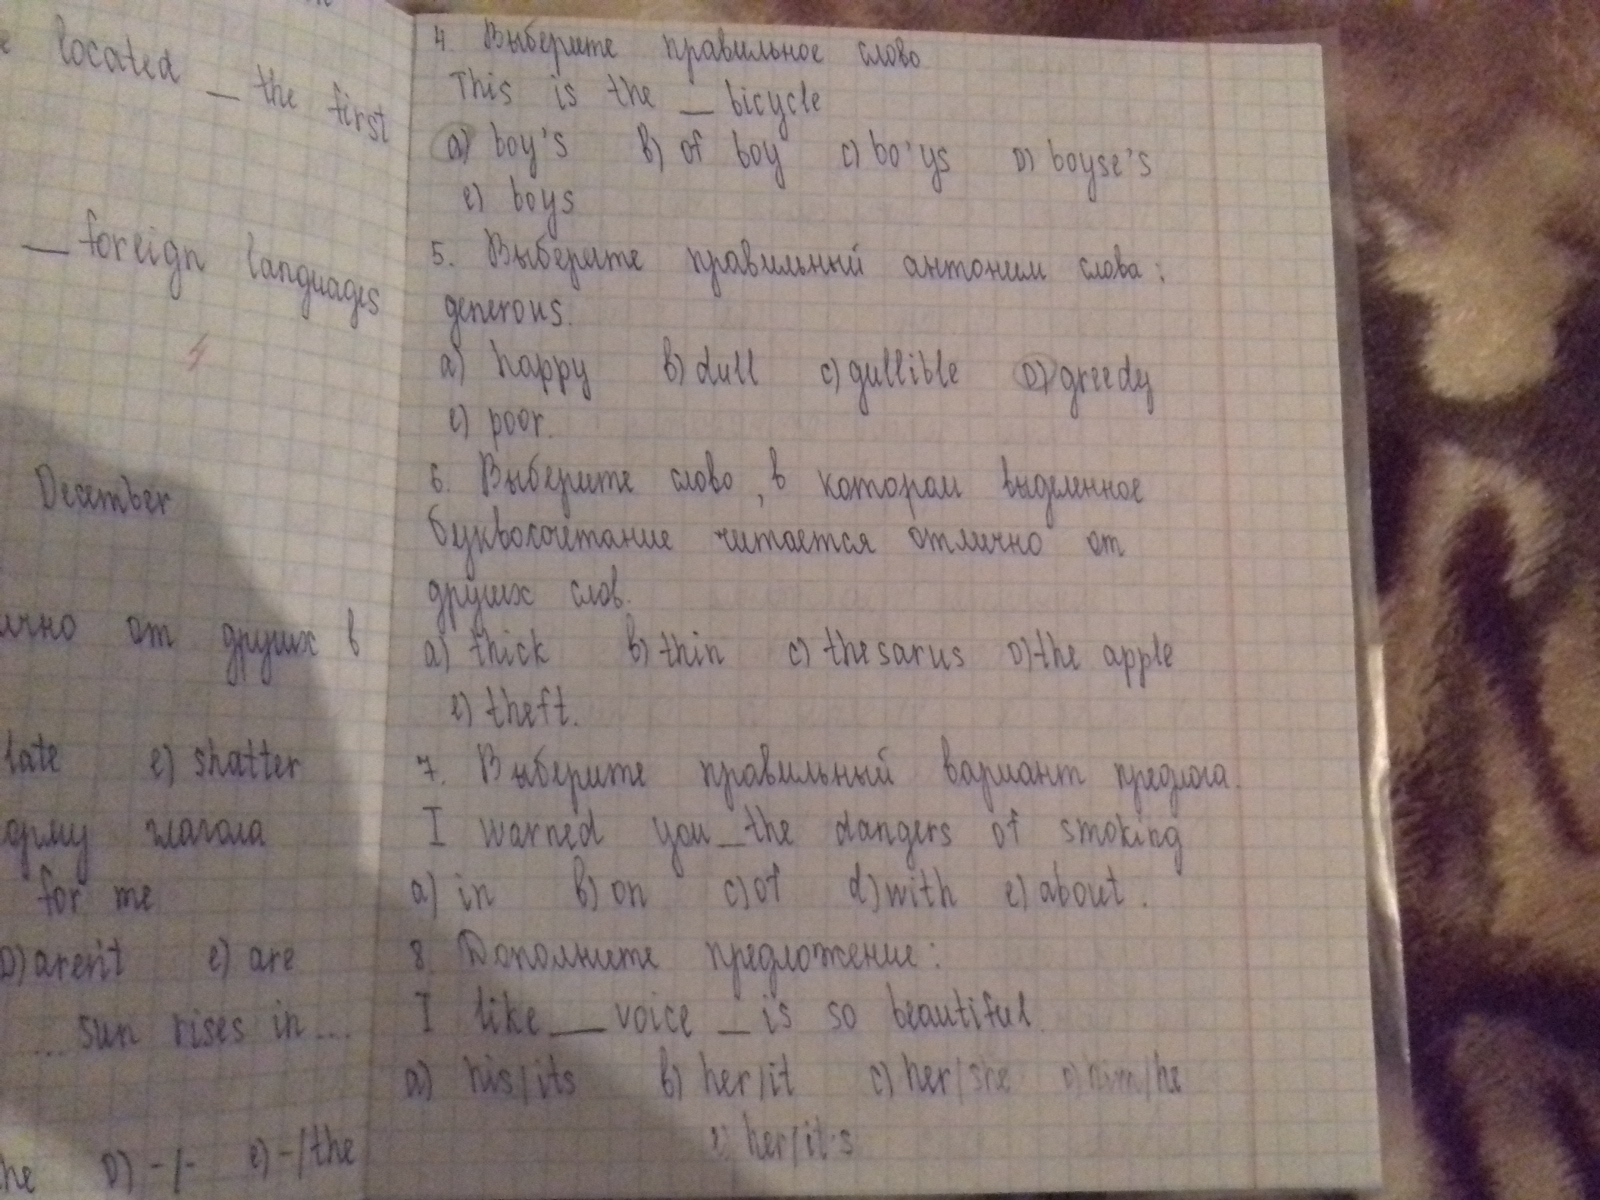 e located _ the first
_ foreign languages
4
December
лично от других в
late e) shatter
орму глагола
for me
D) aren't e) are
... sun rises in ...
he D) -/- e) -/the
4. Выберите правильное слово
This is the _ bicycle
a) boy's b) of boy c) bo'ys D) boyse's
e) boys
5. Выберите правильный антоним слова:
generous.
a) happy b) dull c) gullible D) greedy
e) poor.
6. Выберите слово, в котором выделенное
буквосочетание читается отлично от
других слов.
a) thick b) thin c) thesarus D) the apple
e) theft.
7. Выберите правильный вариант предлога.
I warned you _ the dangers of smoking
a) in b) on c) of d) with e) about.
8. Дополните предложение:
I like _ voice _ is so beautiful.
a) his/its b) her/it c) her/she D) him/he
e) her/it's